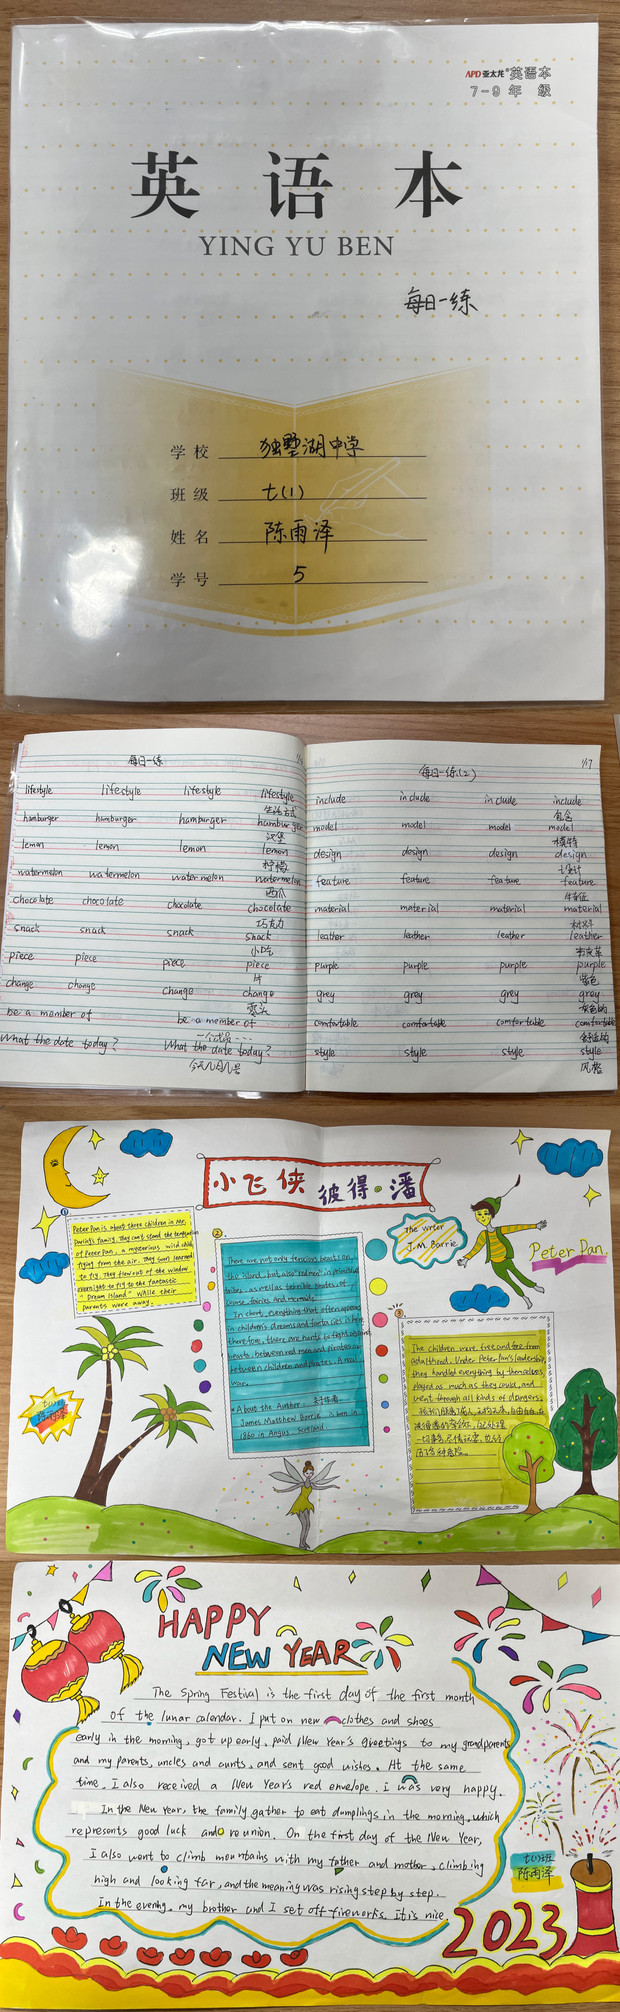 APD亚太龙®英语本
7-9年 级
英 语 本
YING YU BEN
每日一练
学校 独墅湖中学
班级 七(1)
姓名 陈雨泽
学号 5
每日一练
lifestyle lifestyle lifestyle lifestyle
生活方式
hamburger hamburger hamburger hamburger
汉堡
lemon lemon lemon lemon
柠檬
watermelon watermelon watermelon watermelon
西瓜
chocolate chocolate chocolate chocolate
巧克力
snack snack snack snack
小吃
piece piece piece piece
片
change change change change
零头
be a member of be a member of
一个成员……
What the date today? What the date today?
今天几月几号
每日一练(2) 1/17
include include include include
包含
model model model model
模特
design design design design
设计
feature feature feature feature
特征
material material material material
材料
leather leather leather leather
皮革
purple purple purple purple
紫色
grey grey grey grey
灰色的
comfortable comfortable comfortable comfortable
舒适的
style style style style
风格
小飞侠 彼得·潘
①
Peter Pan is about three children in
Darling's family. They can't stand the temptation
of Peter Pan, a mysterious wild child
flying from the air. They soon learned
to fly. They flew out of the window
overnight to fly to the fantastic
"Dream Island" while their
parents were away.
七(1)班
陈雨泽
②
There are not only ferocious beasts on
the island, but also "red men" in primitive
tribes, as well as terrible pirates, of
course, fairies and mermaids.
In short, everything that often appears
in children's dreams and fantasies is here
therefore, there are hunts to fight against
beasts, between red men and pirates or
between children and pirates. A real
war.
*About the Author: 关于作者:
James Matthew Barrie is born in
1860 in Angus, Scotland.
The writer
J.M. Barrie
Peter Pan
③
The children were free and far from
adulthood. Under Peter Pan's leadership,
they handled everything by themselves
played as much as they could, and
went through all kinds of dangers.
一切事务,尽情玩耍,也经
历了各种危险。
HAPPY
NEW YEAR
The Spring Festival is the first day of the first month
of the lunar calendar. I put on new clothes and shoes
early in the morning, got up early, paid New Year's greetings to my grandparents
and my parents, uncles and aunts, and sent good wishes. At the same
time, I also received a New Year's red envelope. I was very happy.
In the New Year, the family gather to eat dumplings in the morning, which
represents good luck and reunion. On the first day of the New Year,
I also went to climb mountains with my father and mother, climbing
high and looking far, and the meaning was rising step by step.
In the evening, my brother and I set off fireworks. It is nice.
七(1)班
陈雨泽
2023